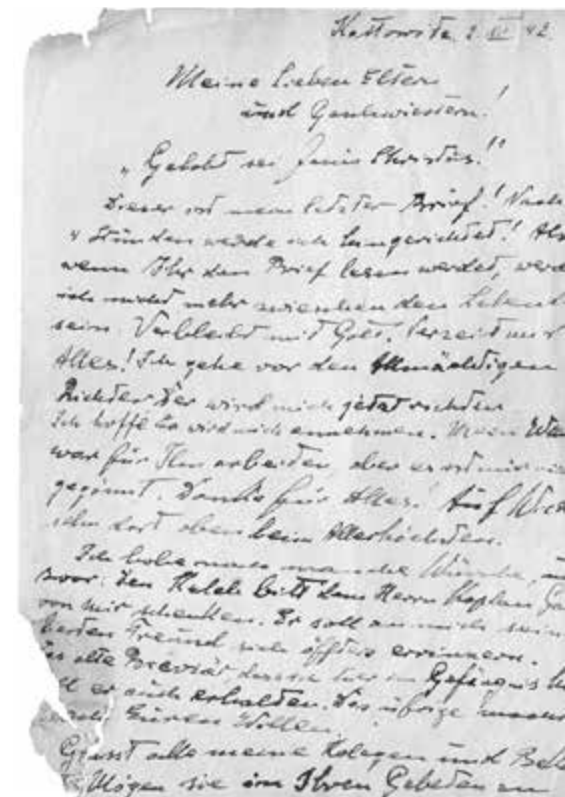 Kattowitz 2 XII 42
Meine Lieben Eltern
und Geschwistern!
„Gelobt sei Jesus Christus!"
Dieser ist mein letzter Brief! Nach
4 Stunden werde ich hingerichtet! Als
wenn Ihr den Brief lesen werdet, werd
ich nicht mehr zwischen den Lebend
sein. Verbleibt mit Gott! Verzeiht mir
Alles! Ich gehe vor den Allmächtigen
Richter der wird mich jetzt richten
Ich hoffe Er wird mich annehmen. Mein Wun
war für Ihn arbeiten, aber es ist mir
gegönnt. Danke für Alles! Auf Wied
sehn dort oben beim Allerhöchsten.
Ich habe noch manche Wünsche,
zwar: Den Kelch bitt dem Herrn Kaplan
von mir schenken. Er soll an mich sein
besten Freund sich öffters erinnern.
alte Breviär, das ich hier im Gefängnis
er auch erhalten. Das übrige
Euren Willen.
Grüsst alle meine Kolegen und Bek
Mögen sie in Ihren Gebeten an